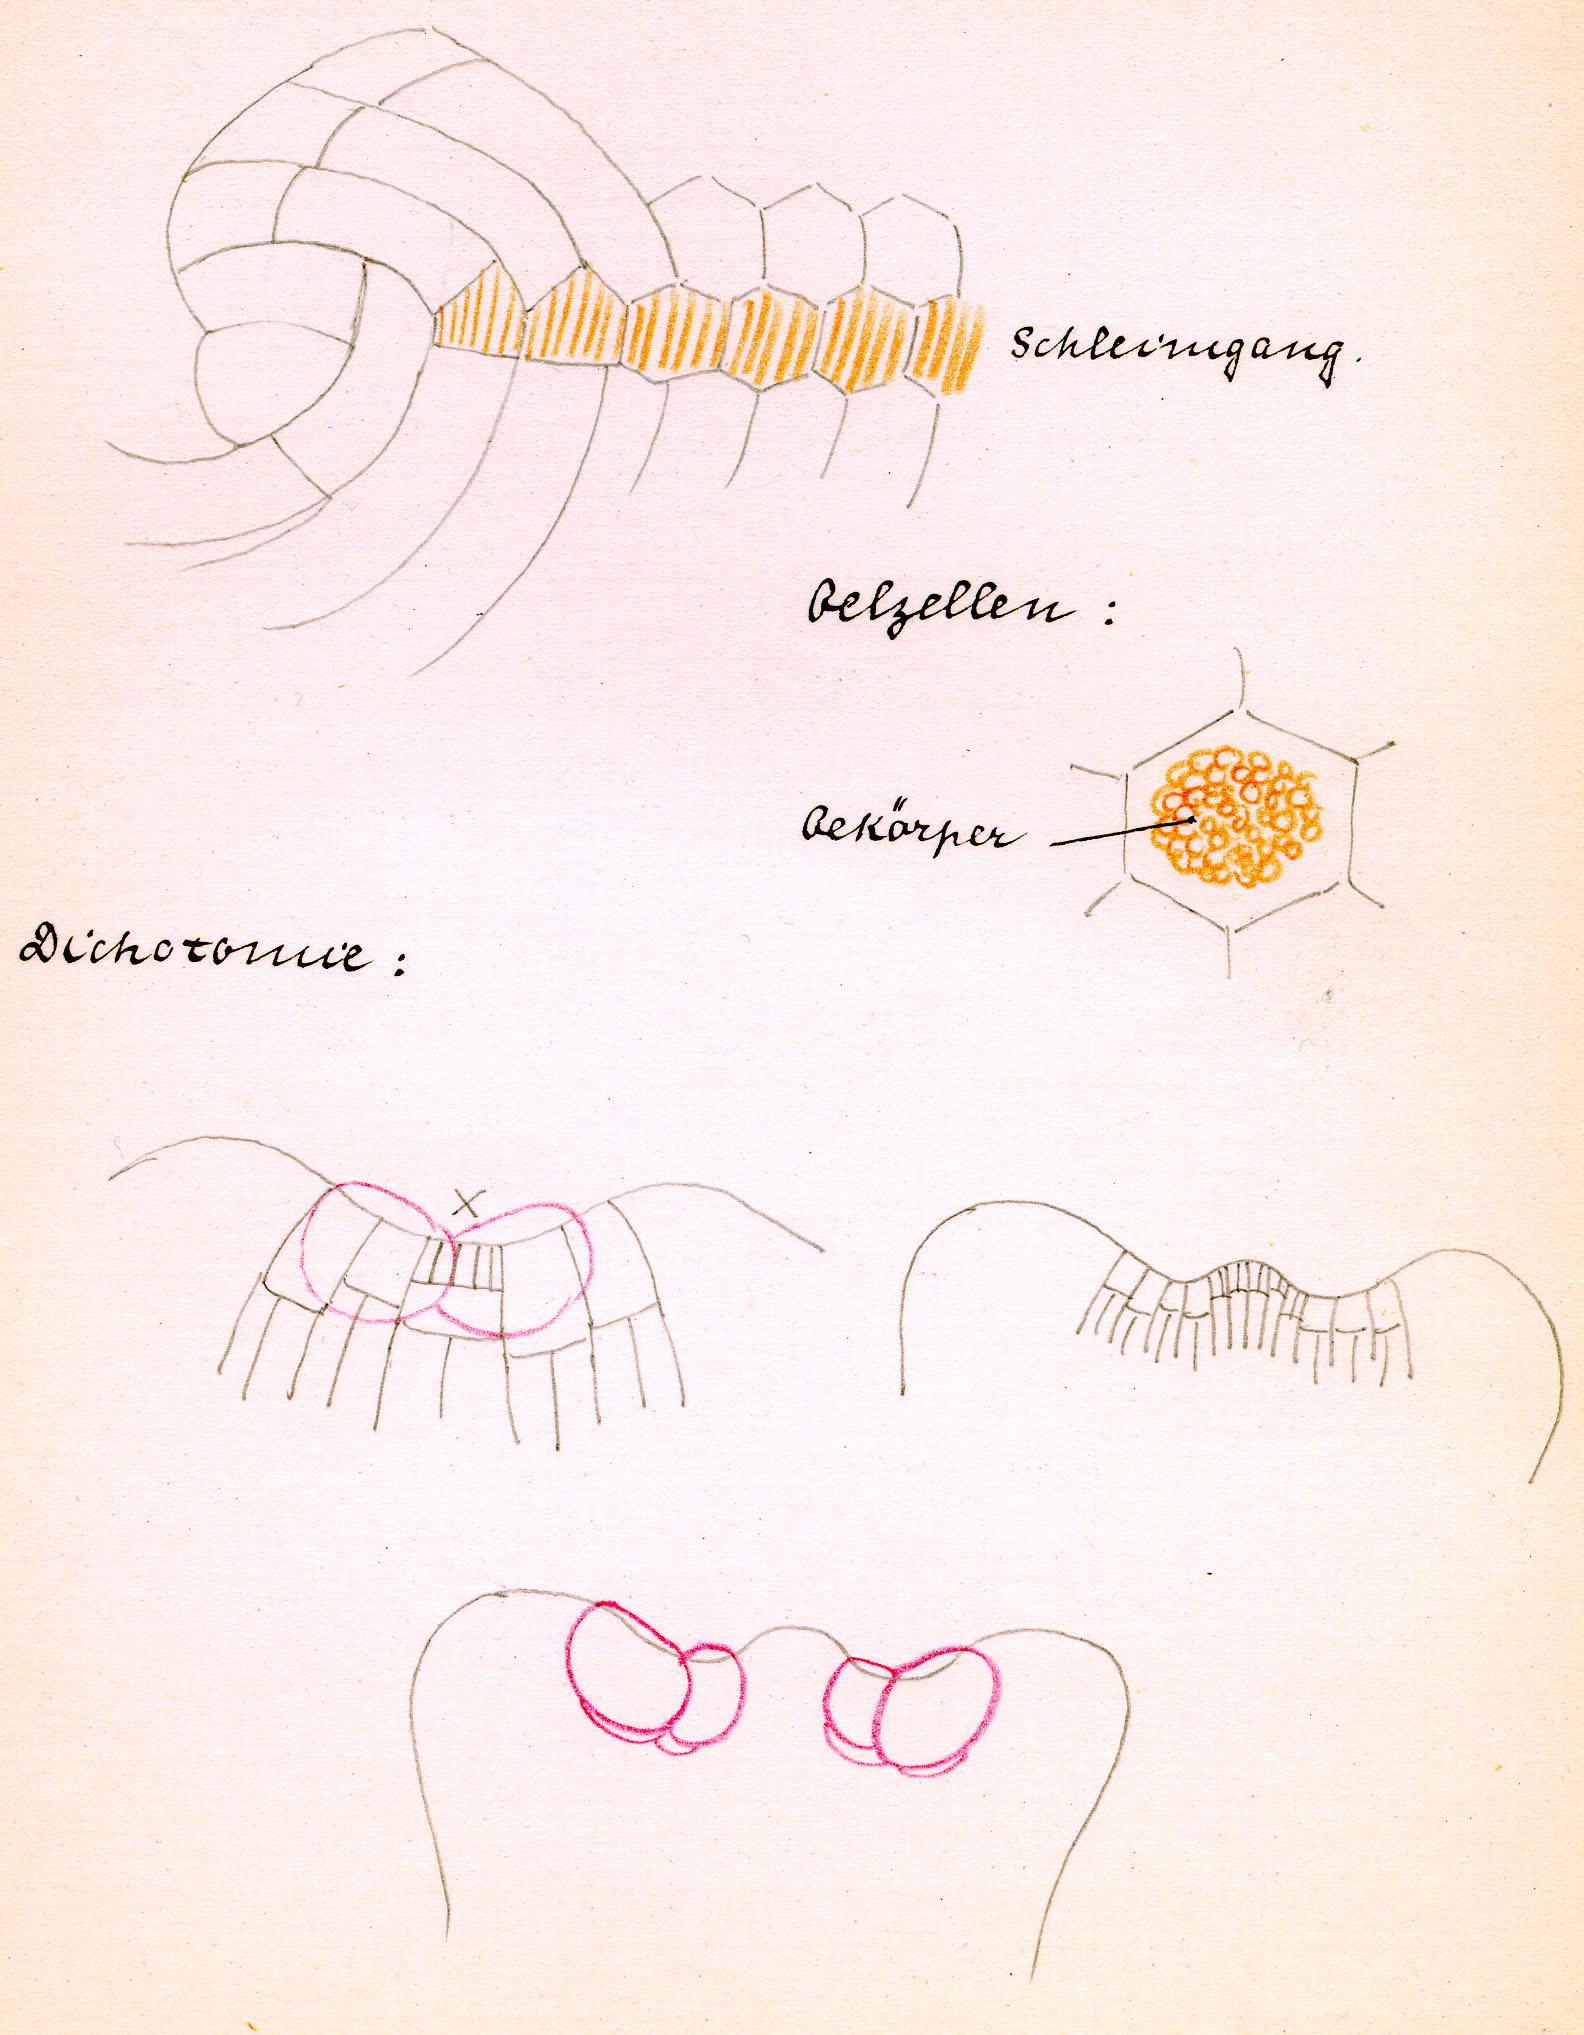 Schleimgang.
Oelzellen :
Oekörper
Dichotomie :
X